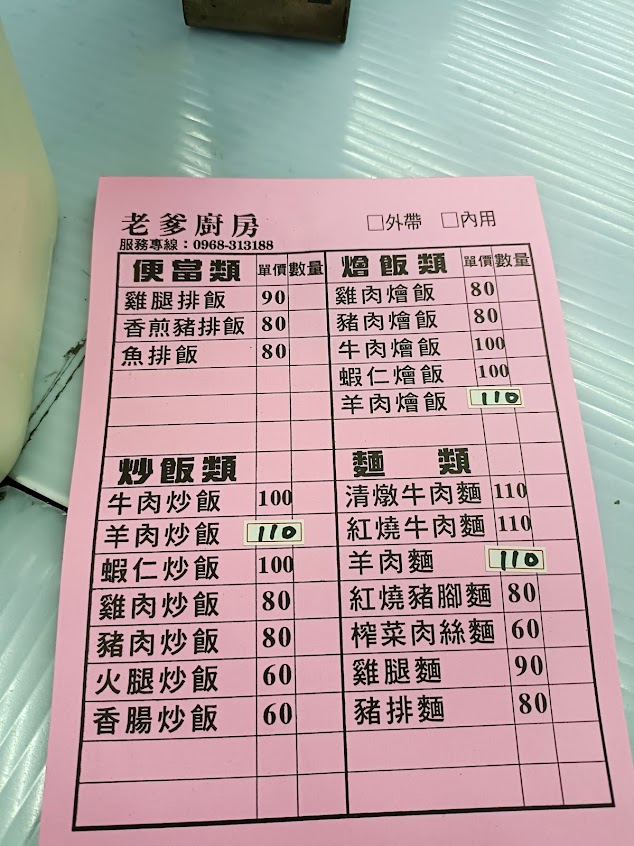 老爹廚房
□外帶 □內用
服務專線：0968-313188
便當類 單價 數量
雞腿排飯 90
香煎豬排飯 80
魚排飯 80
燴飯類 單價 數量
雞肉燴飯 80
豬肉燴飯 80
牛肉燴飯 100
蝦仁燴飯 100
羊肉燴飯 110
炒飯類
牛肉炒飯 100
羊肉炒飯 110
蝦仁炒飯 100
雞肉炒飯 80
豬肉炒飯 80
火腿炒飯 60
香腸炒飯 60
麵類
清燉牛肉麵 110
紅燒牛肉麵 110
羊肉麵 110
紅燒豬腳麵 80
榨菜肉絲麵 60
雞腿麵 90
豬排麵 80